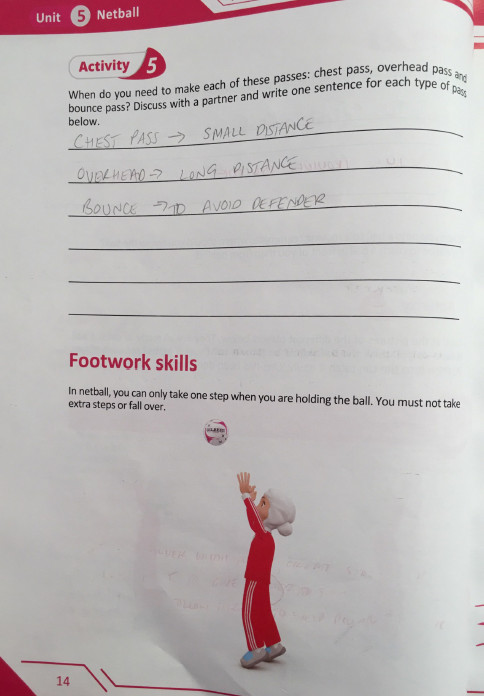 Unit 5 Netball
Activity 5
When do you need to make each of these passes: chest pass, overhead pass and
bounce pass? Discuss with a partner and write one sentence for each type of pass
below.
CHEST PASS → SMALL DISTANCE
OVERHEAD → LONG DISTANCE
BOUNCE → TO AVOID DEFENDER
Footwork skills
In netball, you can only take one step when you are holding the ball. You must not take
extra steps or fall over.
14